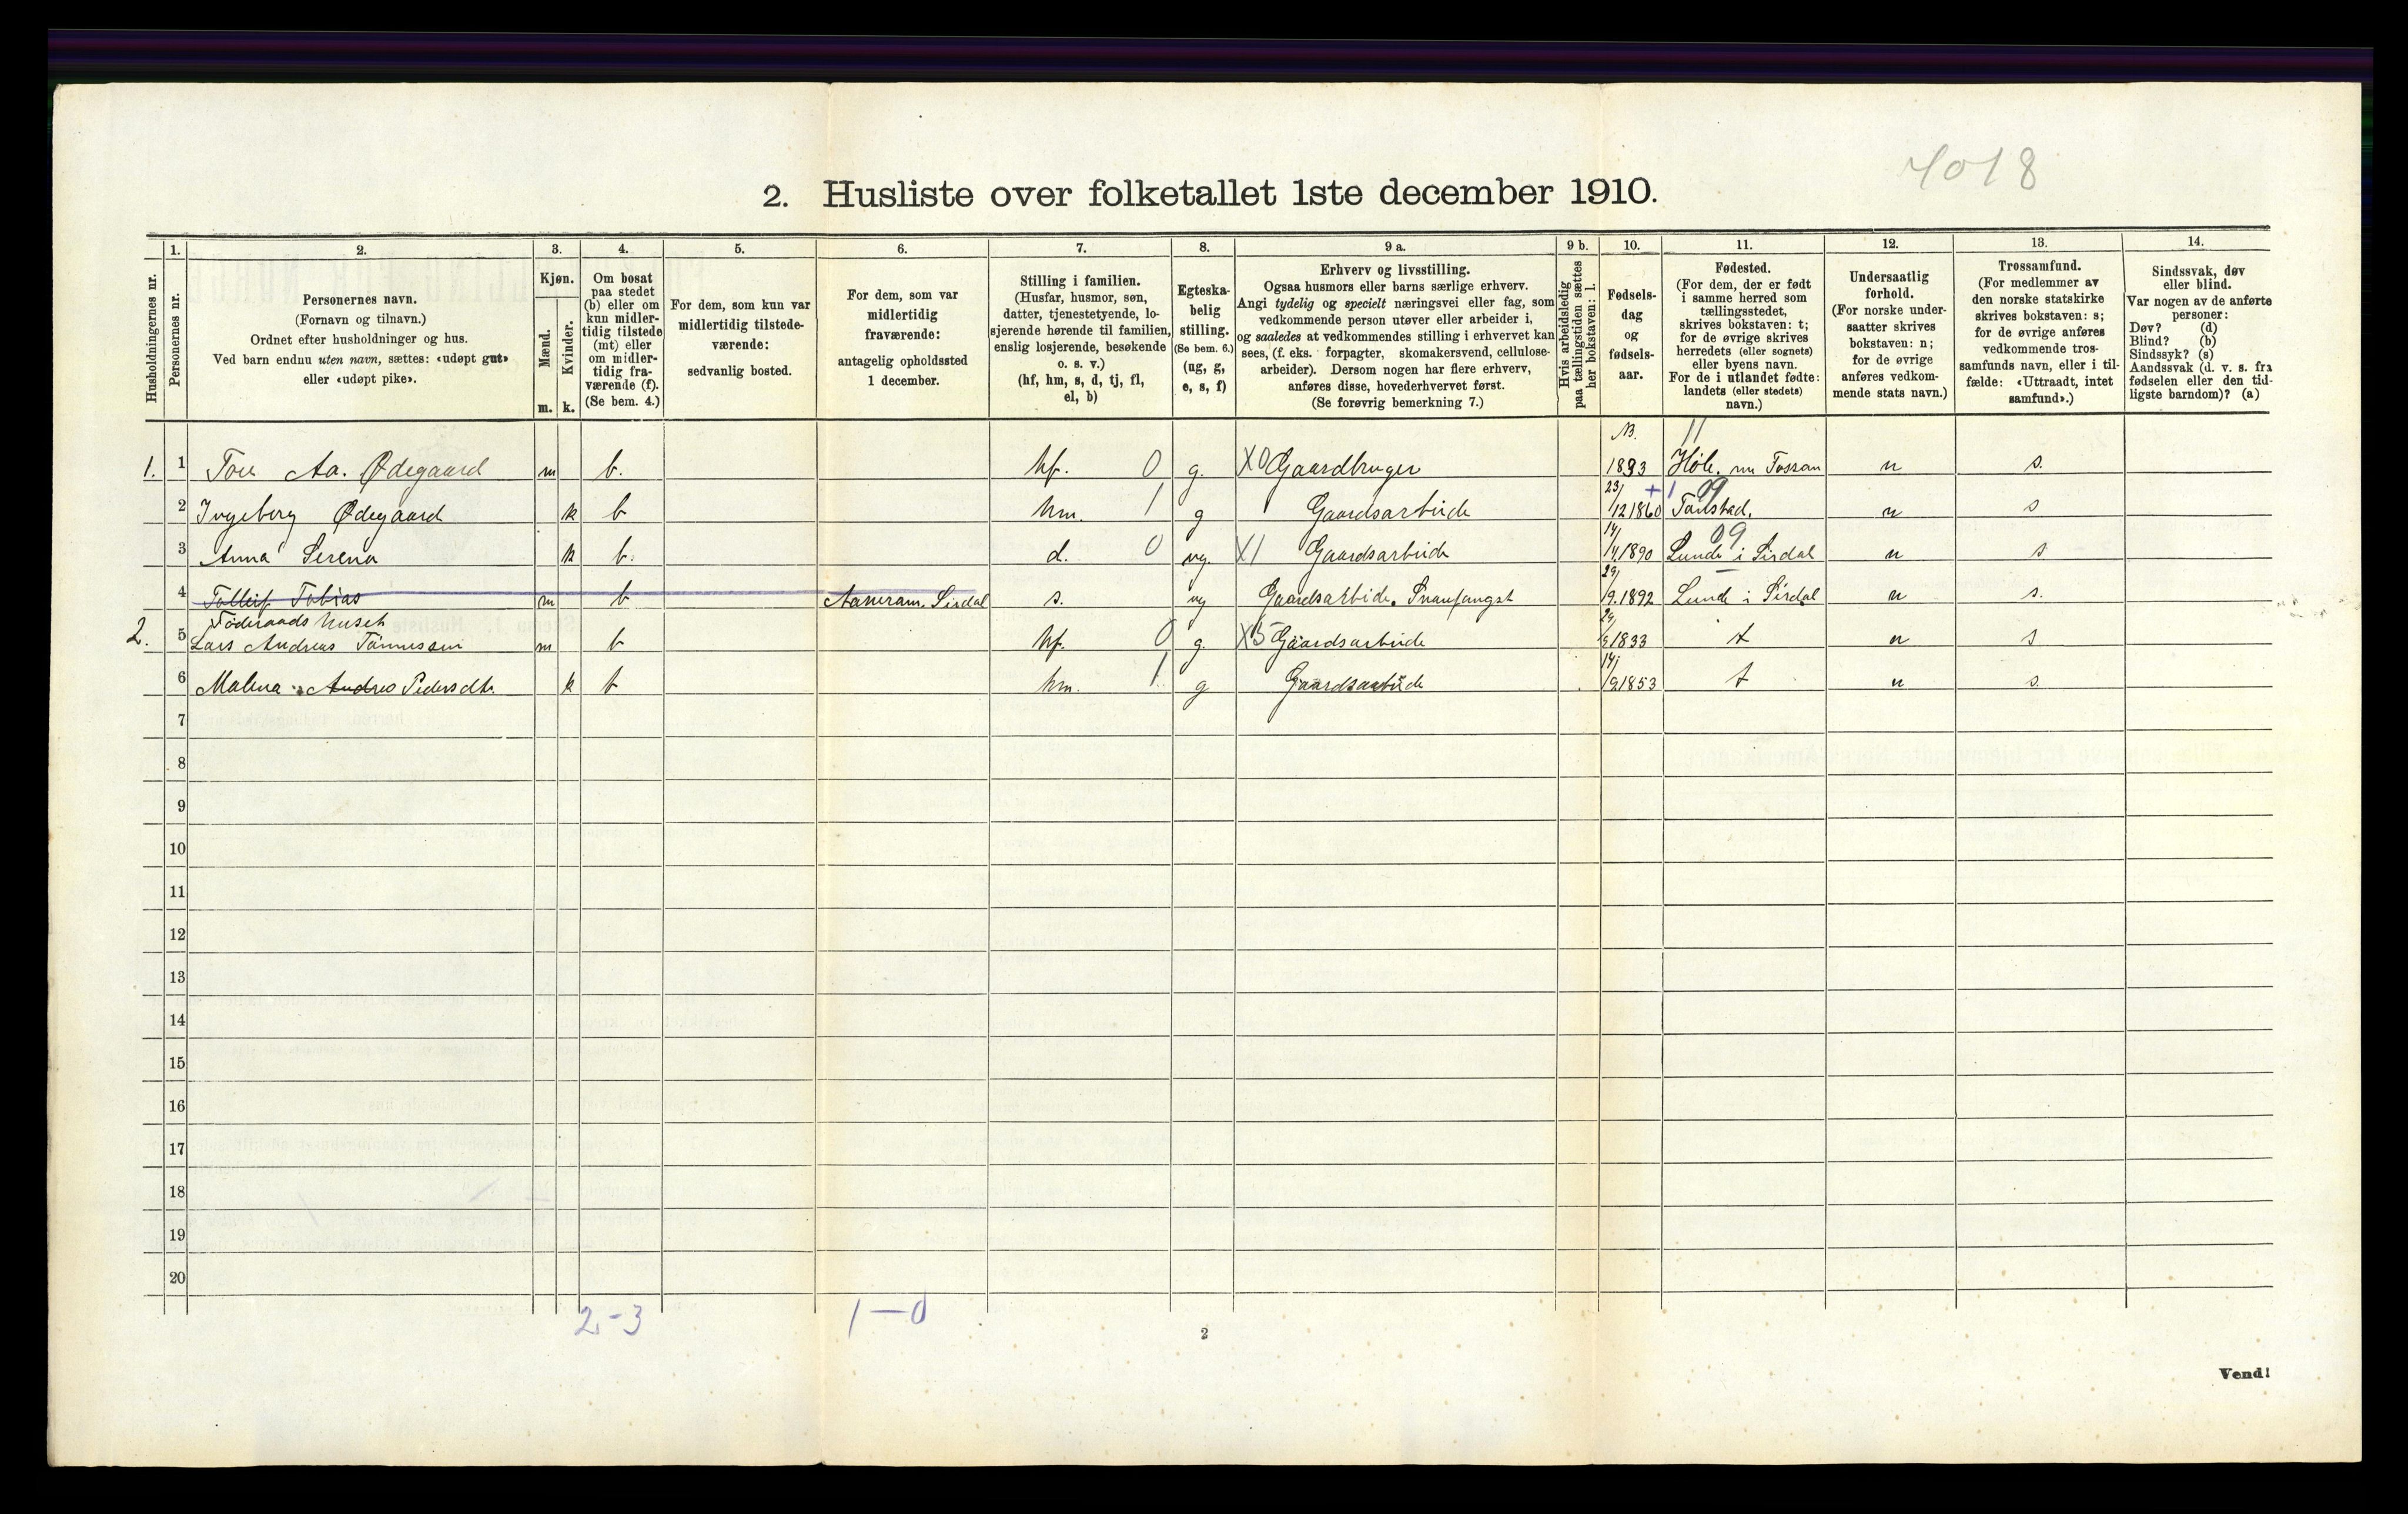 4018
2. Husliste over folketallet 1ste december 1910.
Husholdningernes nr.
1.
Personernes nr.
2.
Personernes navn.
(Fornavn og tilnavn.)
Ordnet efter husholdninger og hus.
Ved barn endnu uten navn, sættes: «udøpt gut»
eller «udøpt pike».
3.
Kjøn.
Mænd.
Kvinder.
m. k.
4.
Om bosat
paa stedet
(b) eller om
kun midler-
tidig tilstede
(mt) eller
om midler-
tidig fra-
værende (f).
(Se bem. 4.)
5.
For dem, som kun var
midlertidig tilstede-
værende:
sedvanlig bosted.
6.
For dem, som var
midlertidig
fraværende:
antagelig opholdssted
1 december.
7.
Stilling i familien.
(Husfar, husmor, søn,
datter, tjenestetyende, lo-
sjerende hørende til familien,
enslig losjerende, besøkende
o. s. v.)
(hf, hm, s, d, tj, fl,
el, b)
8.
Egteska-
belig
stilling.
(Se bem. 6.)
(ug, g,
e, s, f)
9 a.
Erhverv og livsstilling.
Ogsaa husmors eller barns særlige erhverv.
Angi tydelig og specielt næringsvei eller fag, som
vedkommende person utøver eller arbeider i,
og saaledes at vedkommendes stilling i erhvervet kan
sees, (f. eks. forpagter, skomakersvend, cellulose-
arbeider). Dersom nogen har flere erhverv,
anføres disse, hovederhvervet først.
(Se forøvrig bemerkning 7.)
9 b.
Hvis arbeidsledig
paa tællingstiden sættes
her bokstaven: l.
10.
Fødsels-
dag
og
fødsels-
aar.
11.
Fødested.
(For dem, der er født
i samme herred som
tællingsstedet,
skrives bokstaven: t;
for de øvrige skrives
herredets (eller sognets)
eller byens navn.
For de i utlandet fødte:
landets (eller stedets)
navn.)
12.
Undersaatlig
forhold.
(For norske under-
saatter skrives
bokstaven: n;
for de øvrige
anføres vedkom-
mende stats navn.)
13.
Trossamfund.
(For medlemmer av
den norske statskirke
skrives bokstaven: s;
for de øvrige anføres
vedkommende tros-
samfunds navn, eller i til-
fælde: «Uttraadt, intet
samfund».)
14.
Sindssvak, døv
eller blind.
Var nogen av de anførte
personer:
Døv? (d)
Blind? (b)
Sindssyk? (s)
Aandssvak (d. v. s. fra
fødselen eller den tid-
ligste barndom)? (a)
1. 1 Tore Aa. Ødegaard m b. hf. 0 g. X0 Gaardbruger 11 n s.
2 Ingeborg Ødegaard k b hm. 1 g Gaardsarbeide 23/12 1860 09 n s
3 Anna Serena k b. d. 0 ug. X1 Gaardsarbeide 14/4 1890 09 Lunde i Sirdal n s
4 Tolleif Tobias m b Aaneram. Sirdal s. ug Gaardsarbeide. Snarefangst 29/9 1892 Lunde i Sirdal n s.
Føderaadshuset
2. 5 Lars Andreas Tønnessen m b hf. 0 g. X5 Gaardsarbeide 1833 t n s
6 Malena Andrea Pedersdtr k b hm. 1 g Gaardsarbeide 14/9 1853 t n s.
7
8
9
10
11
12
13
14
15
16
17
18
19
20
2-3 1-0
2
Vend!